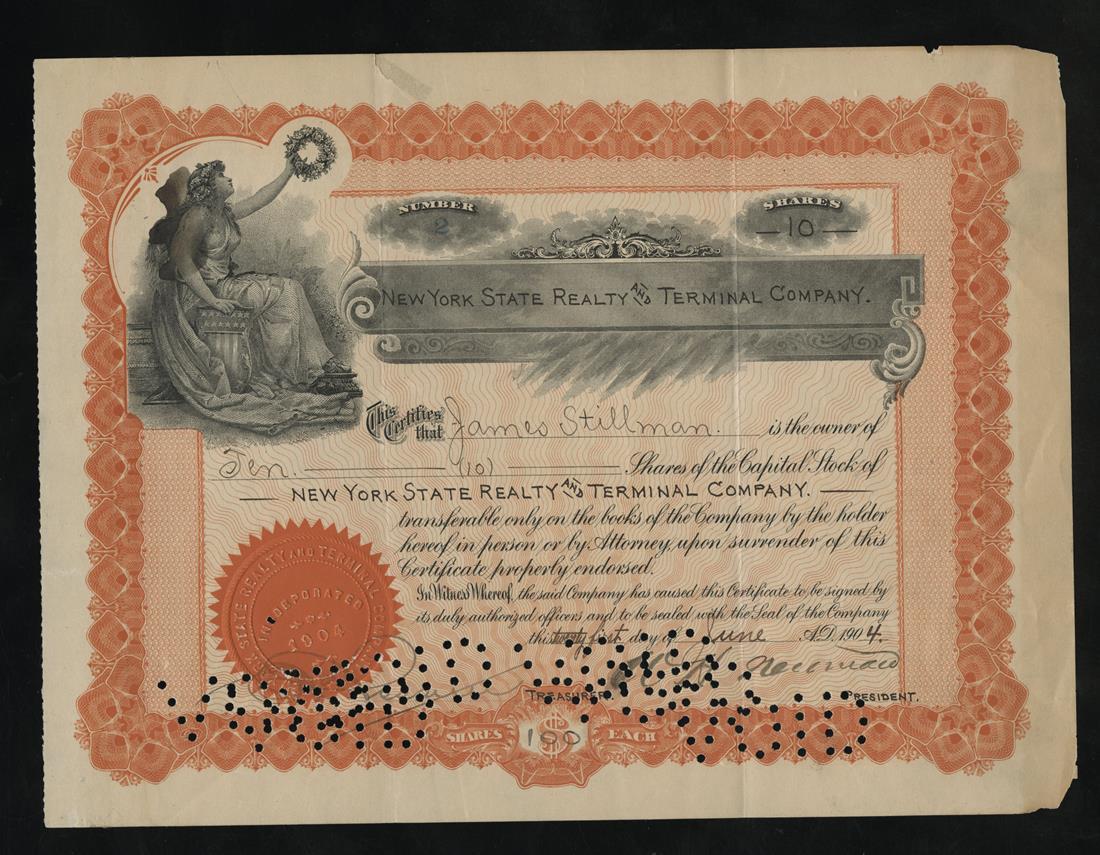 NUMBER
2
SHARES
10
NEW YORK STATE REALTY AND TERMINAL COMPANY.
This Certifies that James Stillman. is the owner of
Ten. (10) Shares of the Capital Stock of
NEW YORK STATE REALTY AND TERMINAL COMPANY.
transferable only on the books of the Company by the holder
hereof in person or by Attorney, upon surrender of this
Certificate properly endorsed.
In Witness Whereof, the said Company has caused this Certificate to be signed by
its duly authorized officers and to be sealed with the Seal of the Company
this twenty first day of June A.D. 1904.
STATE REALTY AND TERMINAL
INCORPORATED
1904
TREASURER
PRESIDENT.
SHARES $100 EACH